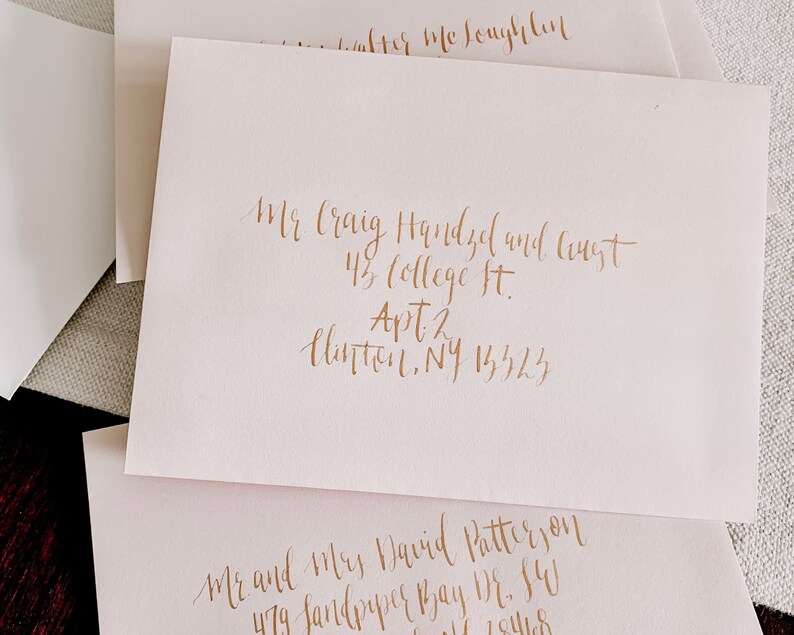 Walter McLoughlin
Mr. Craig Handzel and Guest
43 College St.
Apt. 2
Clinton, NY 13323
Mr. and Mrs David Patterson
479 Sandpiper Bay Dr., SW
NC 28468